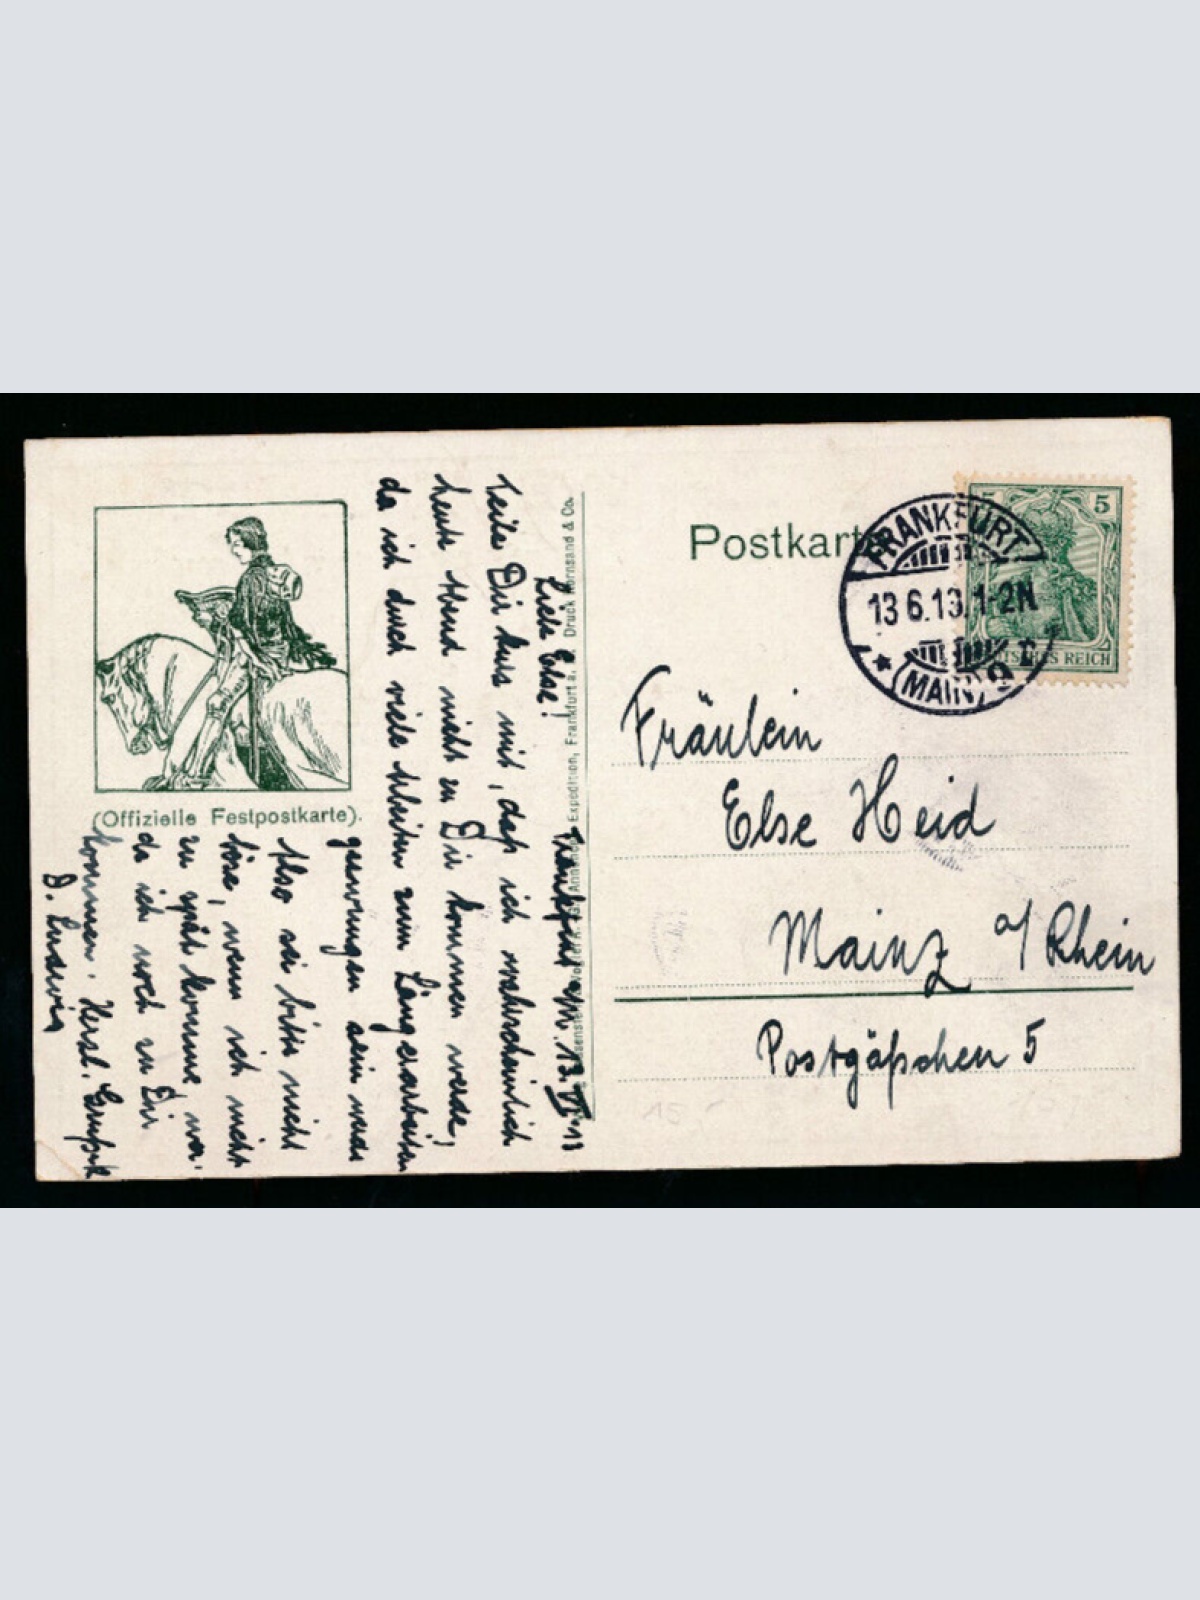 Postkart
FRANKFURT
13.6.13. 1-2N
(MAIN) 9
5
REICH
Fräulein
Else Heid
Mainz a/Rhein
Postgäßchen 5
(Offizielle Festpostkarte).
Expedition, Frankfurt a. M. Druck Kornsand & Co.
Frankfurt a/M. 13. VI. 13
Liebe Else!
Teile Dir kurz mit, daß ich wahrscheinlich
heute Abend nicht zu Dir kommen werde,
da ich durch viele Arbeiten zum Längerarbeiten
gezwungen sein werde
Also sei bitte nicht
böse, wenn ich nicht
zu spät komme, wer-
da ich noch zu Dir
kommen. Herzl. Grüße
D. Ludwig